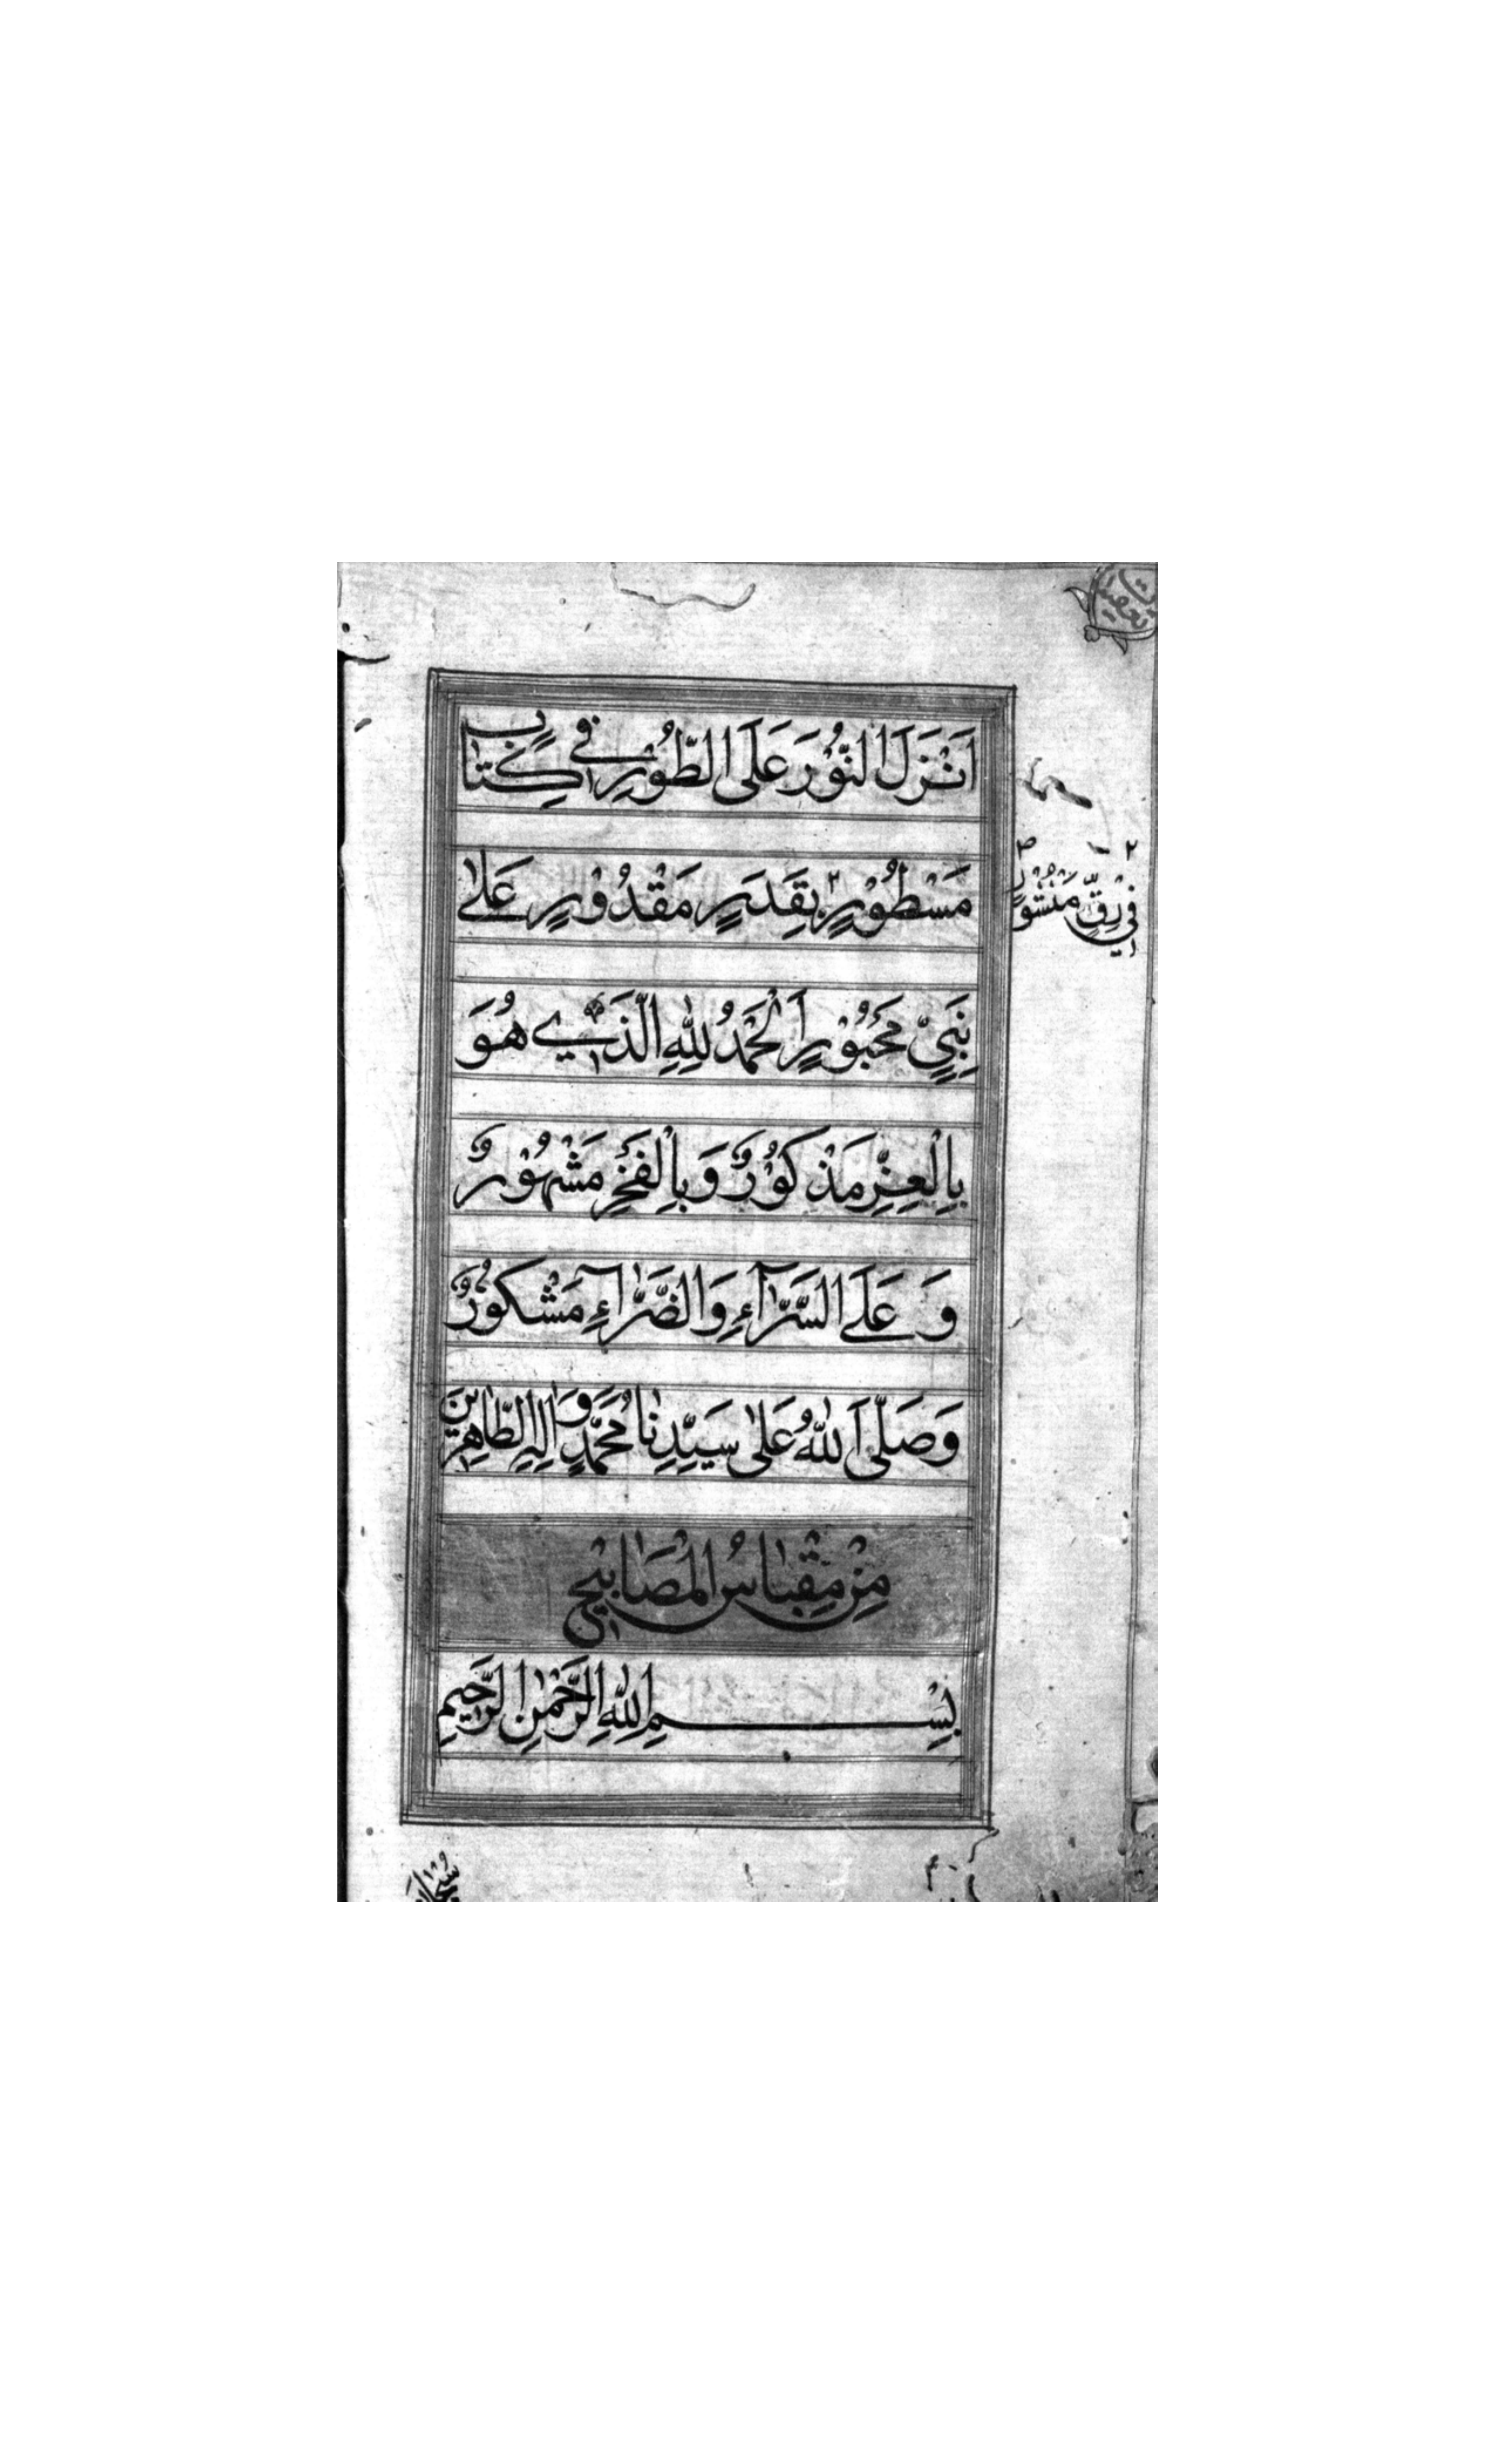 اَنْزَلَ النُّوْرَ عَلَى الطُّوْرِ فِي كِتَابٍ
مَسْطُوْرٍ بِقَدَرٍ مَقْدُوْرٍ عَلٰى
فِيْ رِقٍّ مَنْشُوْرٍ
نَبِيٍّ مَحْبُوْرٍ اَلْحَمْدُ لِلّٰهِ الَّذِيْ هُوَ
بِالْعِزِّ مَذْكُوْرٌ وَبِالْفَخْرِ مَشْهُوْرٌ
وَعَلَى السَّرَّآءِ وَالضَّرَّآءِ مَشْكُوْرٌ
وَصَلَّى اللهُ عَلٰى سَيِّدِنَا مُحَمَّدٍ وَاٰلِهِ الطَّاهِرِيْنَ
مِنْ مِقْبَاسِ الْمَصَابِيْحِ
بِسْمِ اللهِ الرَّحْمٰنِ الرَّحِيْمِ